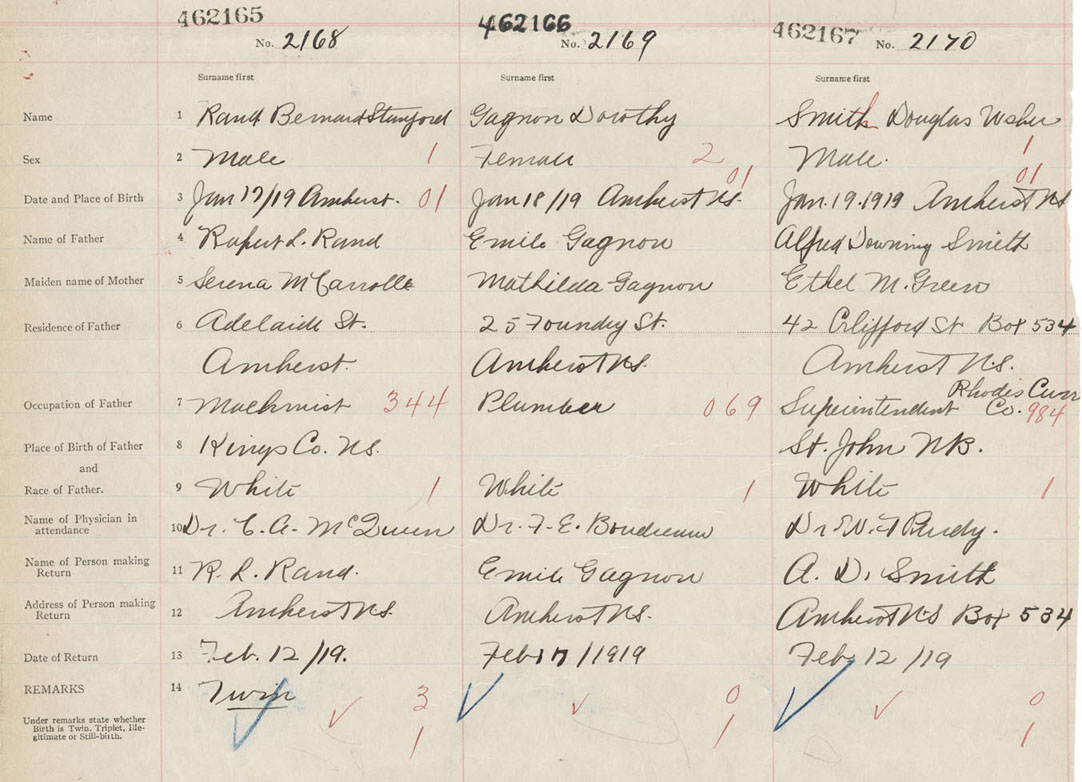 462165 462166 462167
No. 2168 No. 2169 No. 2170
Surname first Surname first Surname first
Name 1 Rand Bernard Stanford Gagnon Dorothy Smith Douglas Usher
Sex 2 Male 1 Female 2 Male. 1
01 01
Date and Place of Birth 3 Jan 17/19 Amherst. 01 Jan 18/19 Amherst NS. Jan. 19. 1919 Amherst NS
Name of Father 4 Rupert L. Rand Emile Gagnon Alfred Downing Smith
Maiden name of Mother 5 Serena Mathilda Gagnon Ethel M. Green
Residence of Father 6 Adelaide St. 25 Foundry St. 42 St Box 534
Amherst. Amherst NS. Amherst NS.
Rhodes Curr
Occupation of Father 7 Machinist 344 Plumber 069 Superintendent Co. 984
Place of Birth of Father 8 Kings Co. NS. St. John NB.
and
Race of Father. 9 White 1 White 1 White 1
Name of Physician in
attendance 10 Dr. C. A. Dr. F. E. Boudreau Dr
Name of Person making
Return 11 R. L. Rand. Emile Gagnon A. D. Smith
Address of Person making
Return 12 Amherst NS. Amherst NS. Amherst NS Box 534
Date of Return 13 Feb. 12/19. Feb 17/1919 Feb 12/19
REMARKS 14 Twin 3 0 0
Under remarks state whether
Birth is Twin. Triplet, Ille-
gitimate or Still-birth. 1 1 1